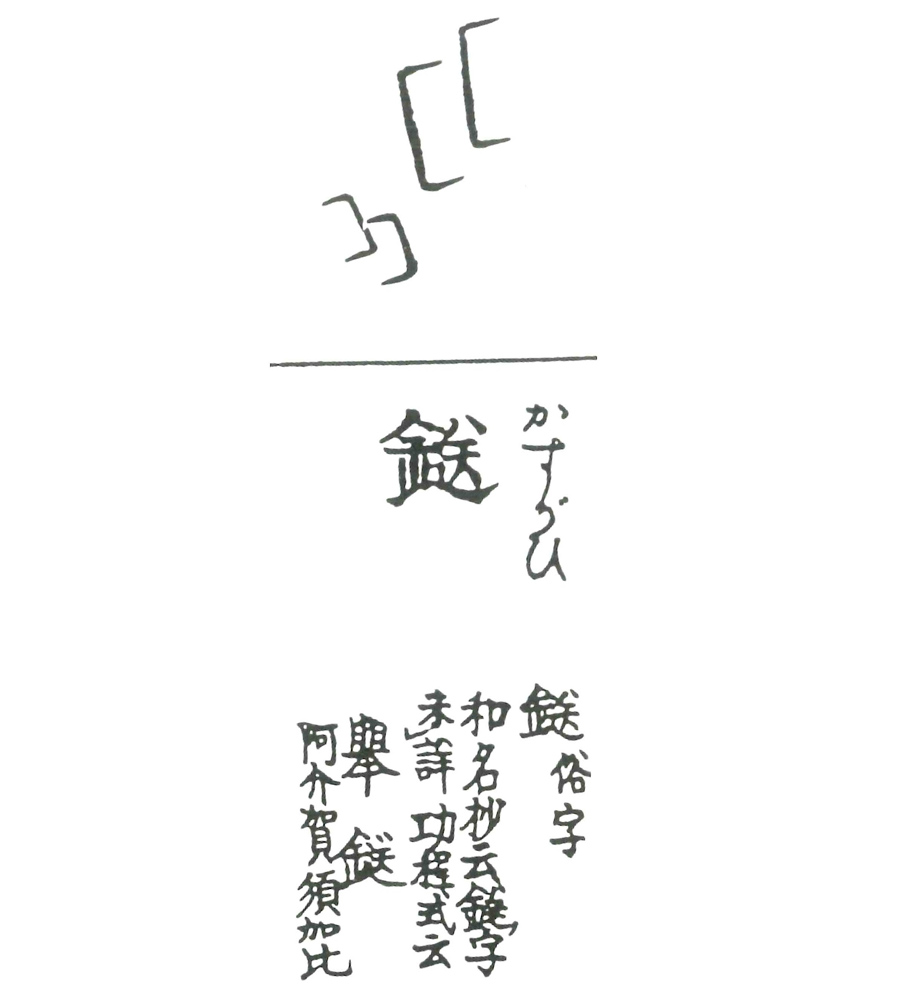 かすがひ
鎹
鎹 俗字
和名抄云鎹字
未詳 功程式云
舉 鎹
阿介賀須加比